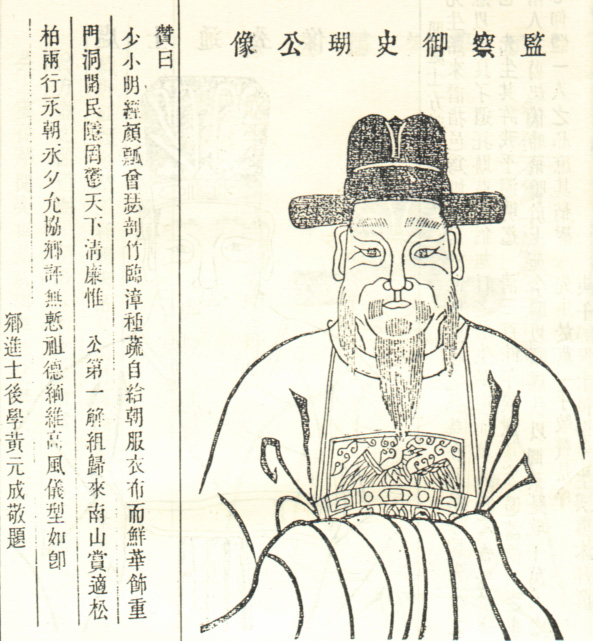 監察御史瑚公像
贊曰
少小明經顏瓢曾瑟剖竹臨漳種蔬自給朝服衣布而鮮華飾重
門洞開民隱罔天下清廉惟 公第一解組歸來南山賞適松
柏兩行永朝永夕允協鄉評無慙祖德緬維高風儀型如卽
鄉進士後學黃元成敬題